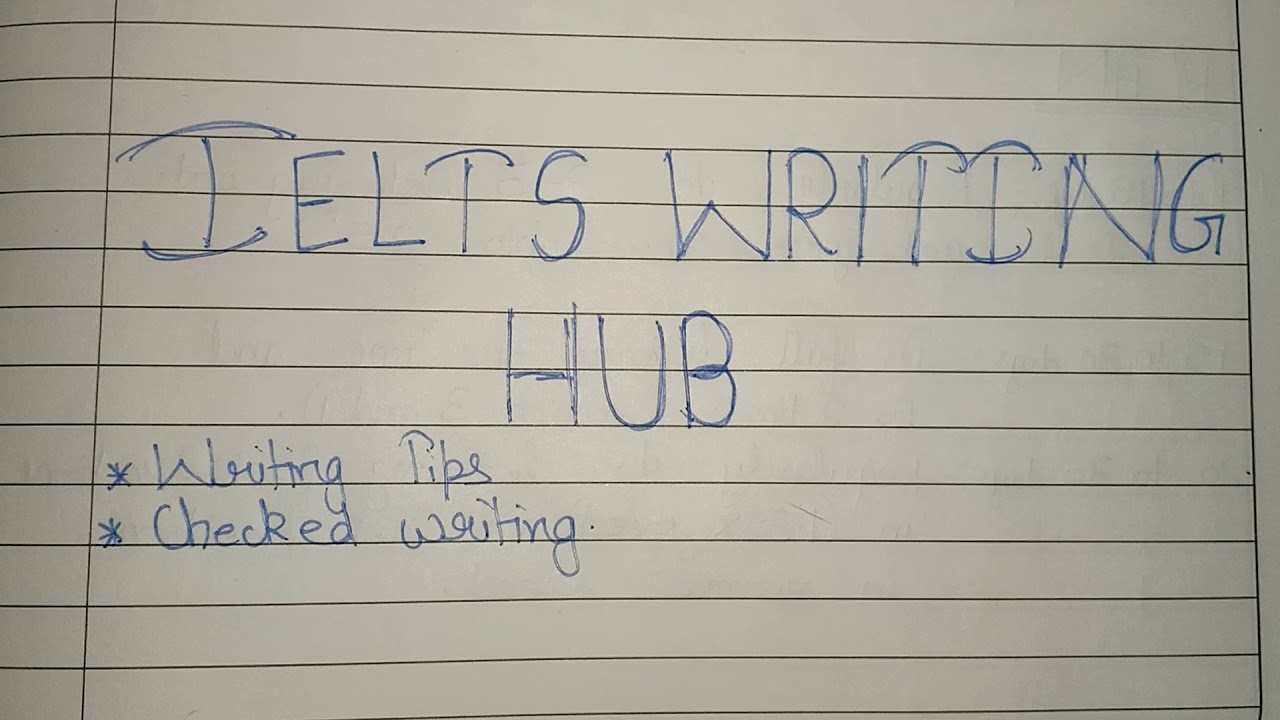 IELTS WRITING
HUB
* Writing Tips
* Checked writing.